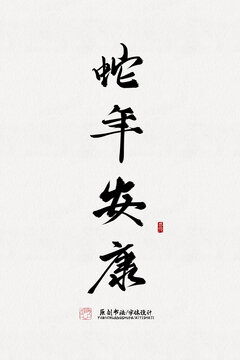 蛇年安康
原创书法/字体设计